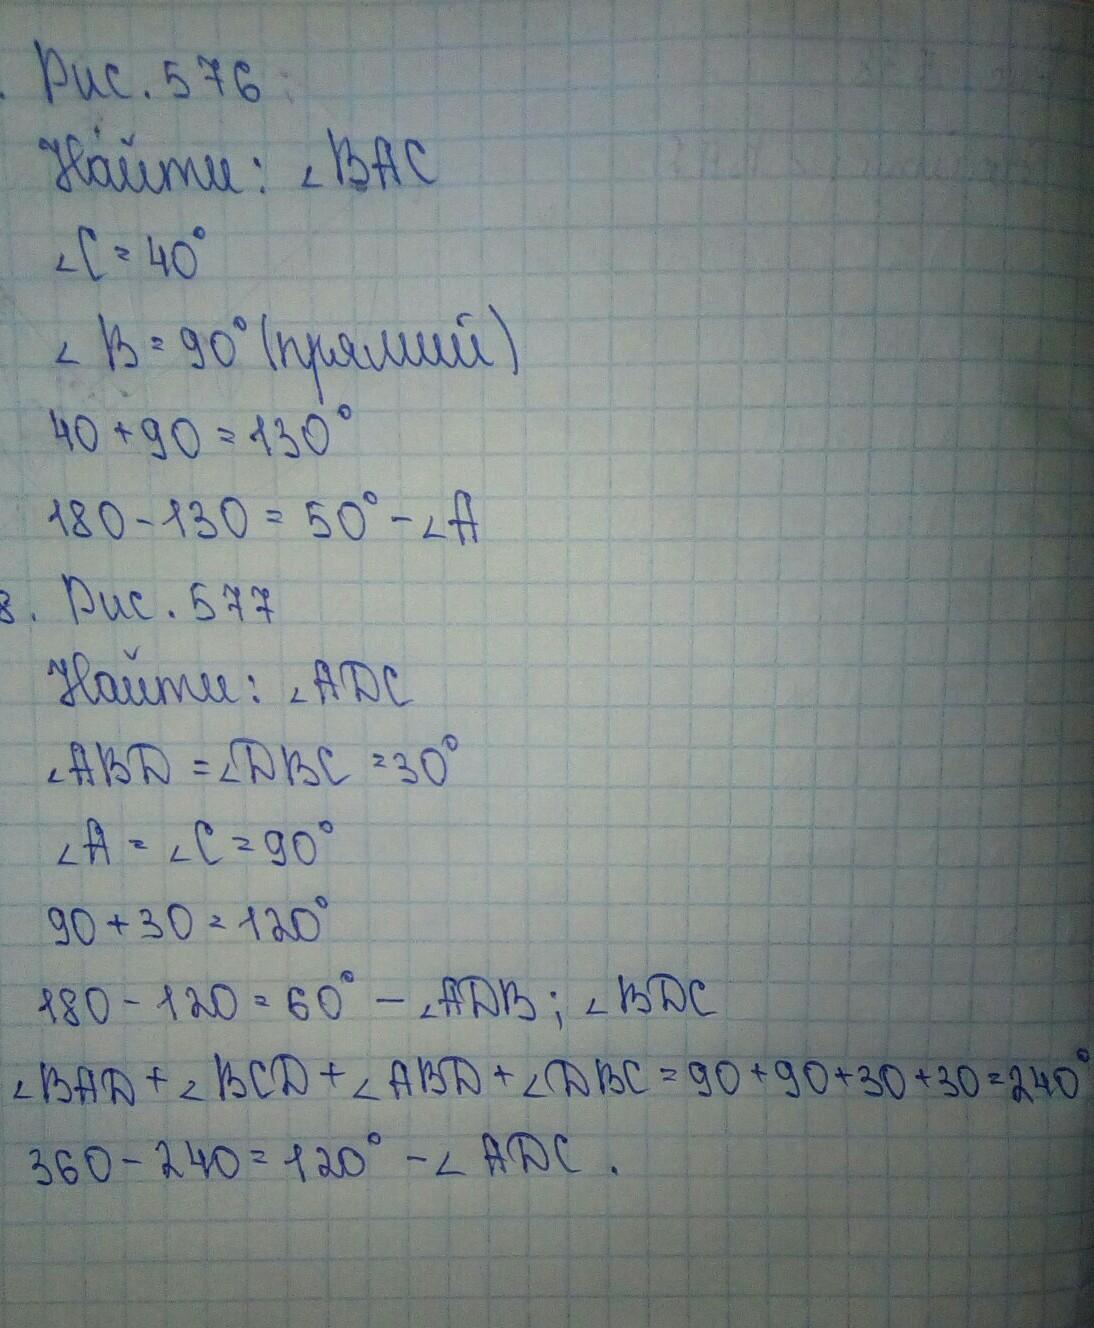 . Рис. 576
Найти: ∠BAC
∠C = 40°
∠B = 90° (прямий)
40 + 90 = 130°
180 - 130 = 50° - ∠A
8. Рис. 577
Найти: ∠ADC
∠ABD = ∠DBC = 30°
∠A = ∠C = 90°
90 + 30 = 120°
180 - 120 = 60° - ∠ADB; ∠BDC
∠BAD + ∠BCD + ∠ABD + ∠DBC = 90 + 90 + 30 + 30 = 240°
360 - 240 = 120° - ∠ADC.